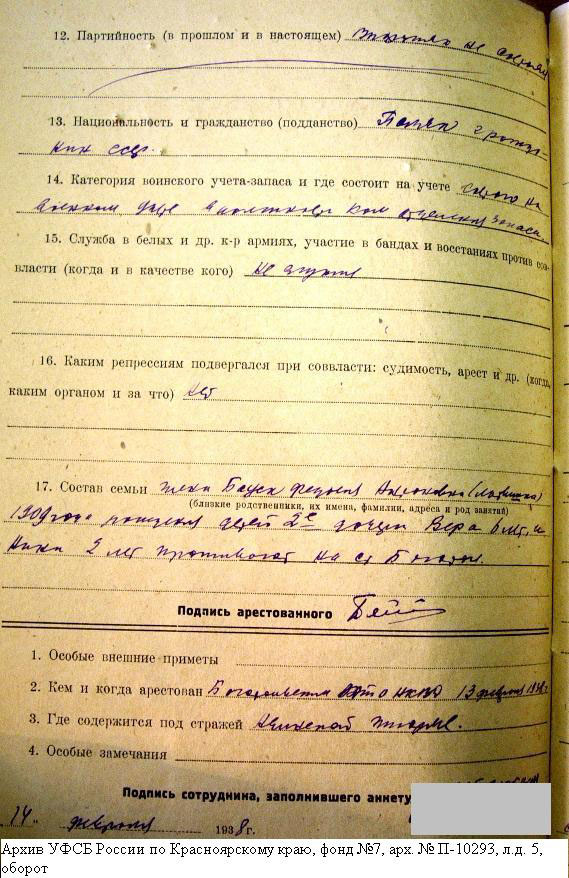 12. Партийность (в прошлом и в настоящем) не
13. Национальность и гражданство (подданство) Поляк граж-
нин СССР.
14. Категория воинского учета-запаса и где состоит на учете на
запаса.
15. Служба в белых и др. к-р армиях, участие в бандах и восстаниях против сов-
власти (когда и в качестве кого) не служил
16. Каким репрессиям подвергался при соввласти: судимость, арест и др. (когда,
каким органом и за что) нет
17. Состав семьи жена Антоновна (латышка)
(близкие родственники, их имена, фамилии, адреса и род занятий)
1909 года рождения детей 2е дочери Вера 6 лет, и
Нина 2 лет проживают на ст Боготол.
Подпись арестованного
1. Особые внешние приметы
2. Кем и когда арестован НКВД 13 февраля 1938 г.
3. Где содержится под стражей тюрьме.
4. Особые замечания
Подпись сотрудника, заполнившего анкету
„14“ февраля 1938 г.
Архив УФСБ России по Красноярскому краю, фонд №7, арх. № П-10293, л.д. 5,
оборот